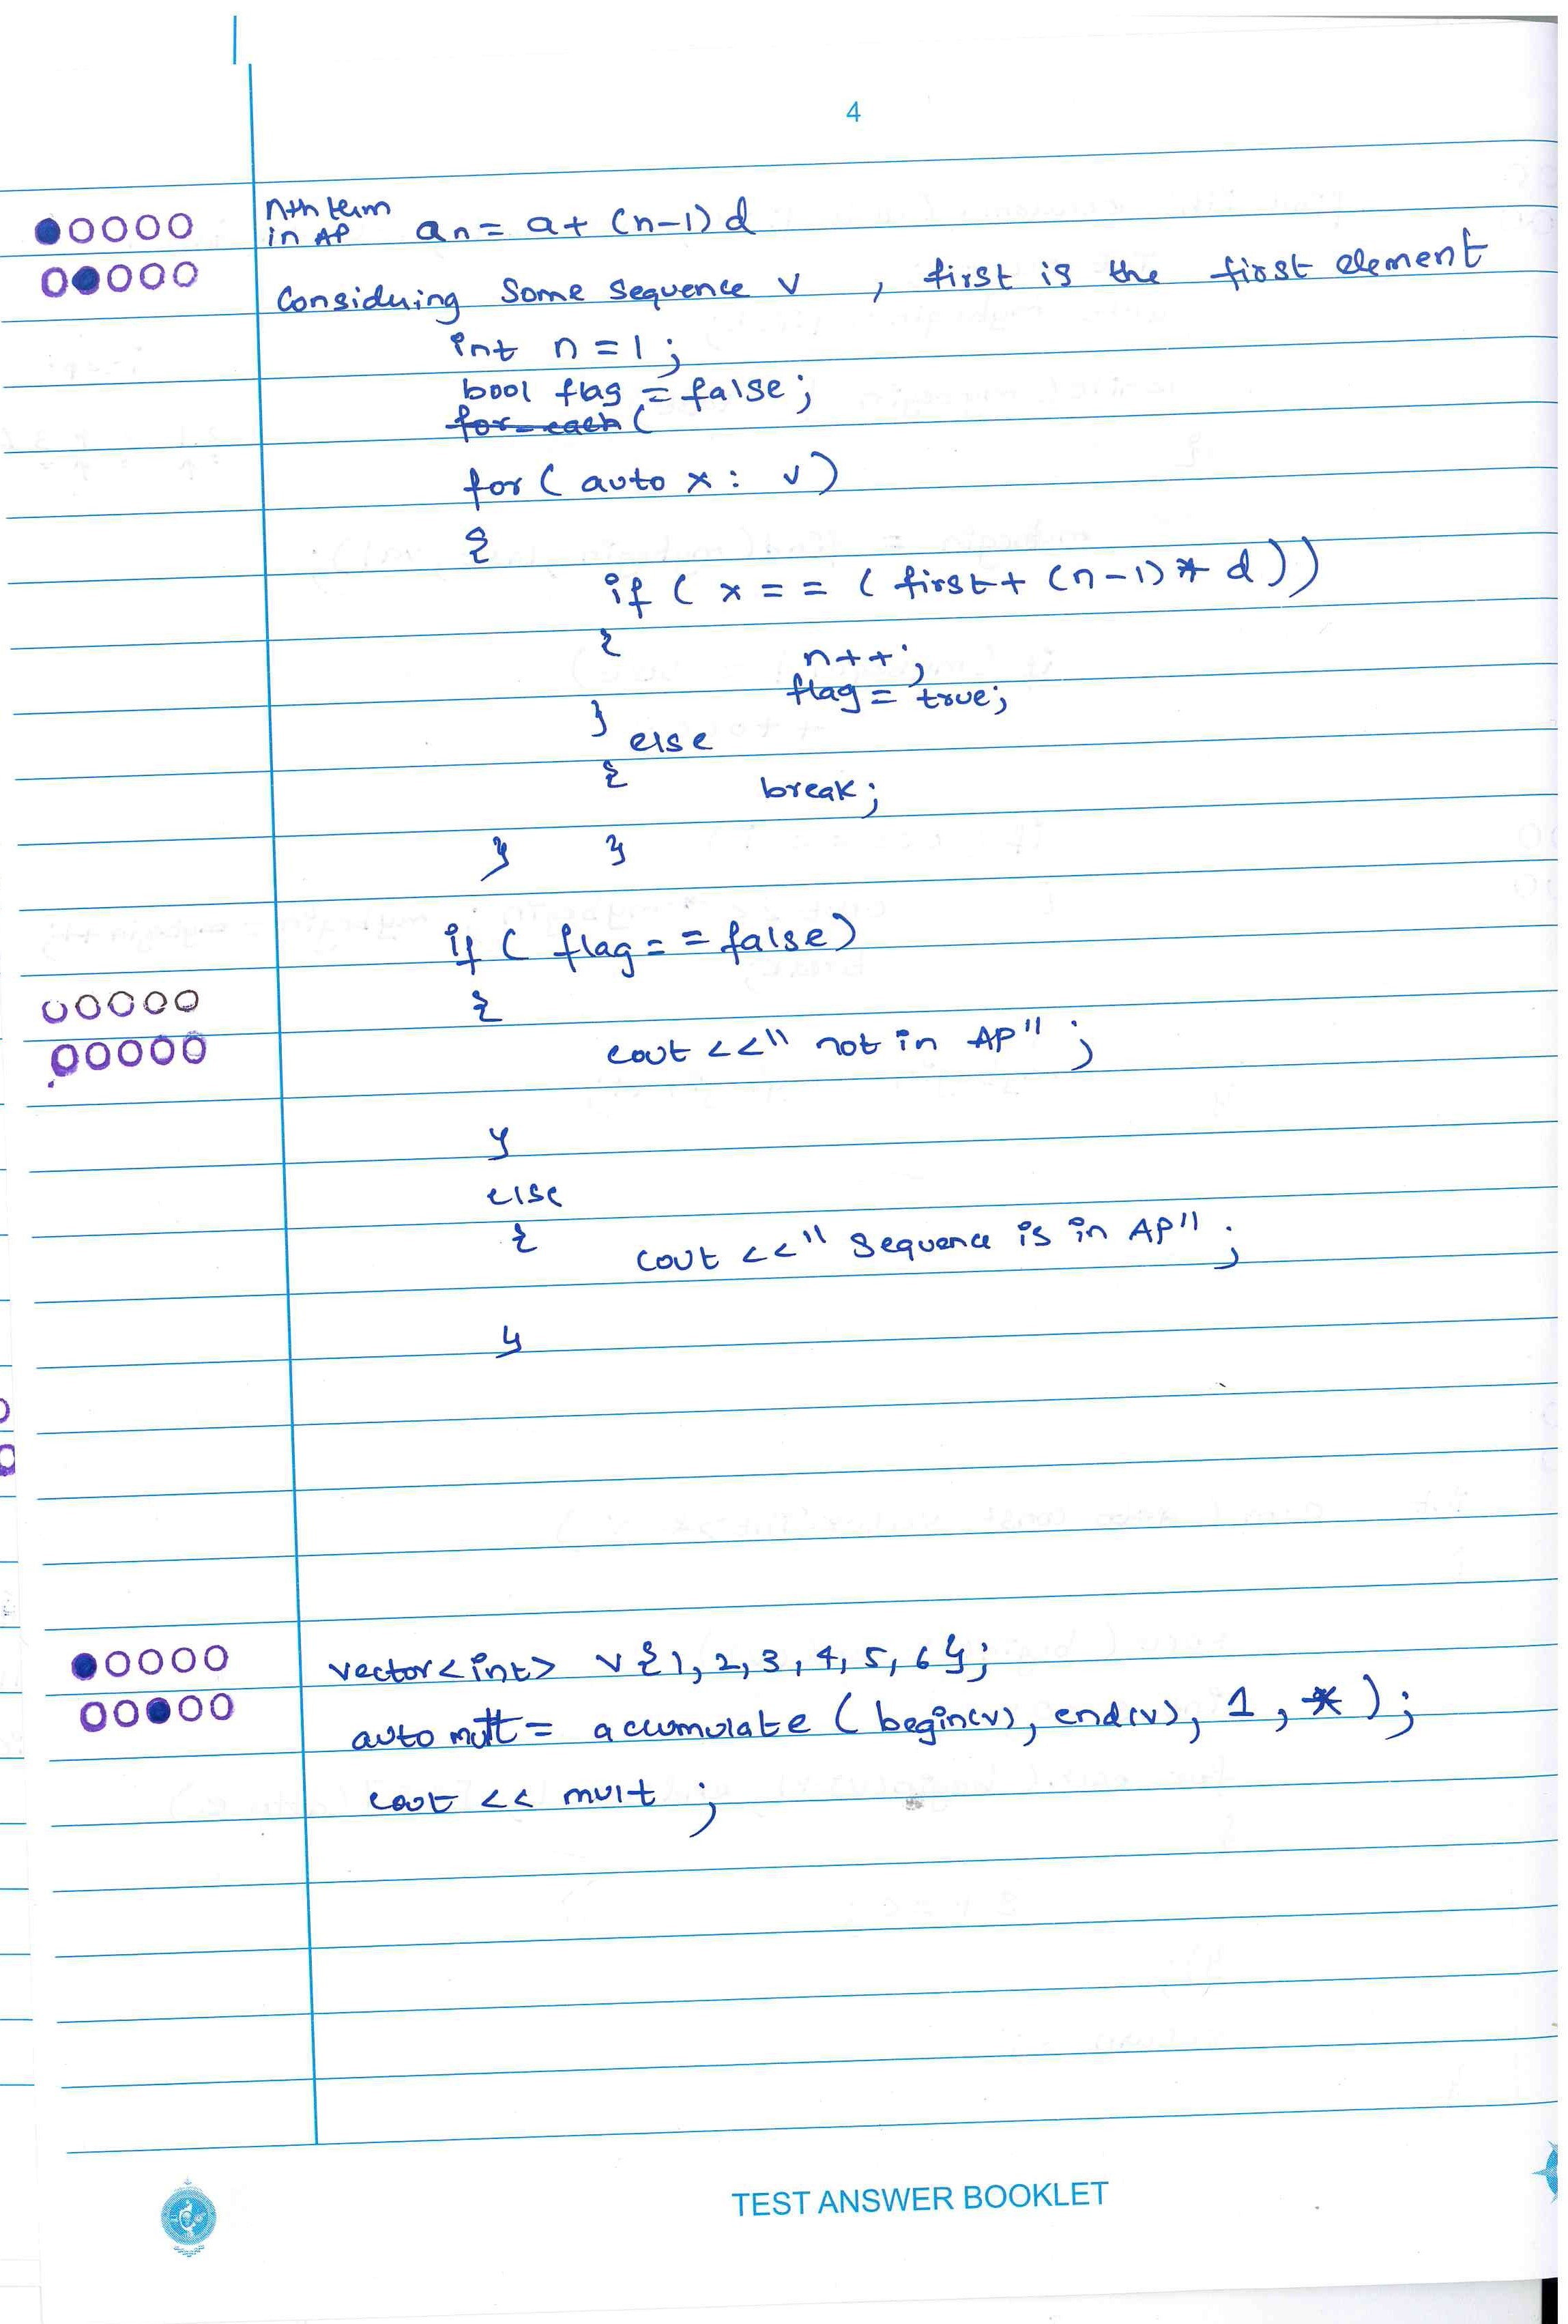 4
nth term
in AP an = a + (n-1) d
Considering some sequence v , first is the first element
int n = 1 ;
bool flag = false;
for-each (
for ( auto x : v )
{
if ( x == ( first + (n-1) * d ) )
{
n++ ;
flag = true;
}
else
{
break;
} }
if ( flag == false)
{
cout << " not in AP" ;
}
else
{
cout << " Sequence is in AP" ;
}
vector<int> v {1, 2, 3, 4, 5, 6 };
auto mult = accumulate ( begin(v), end(v), 1, * );
cout << mult ;
TEST ANSWER BOOKLET